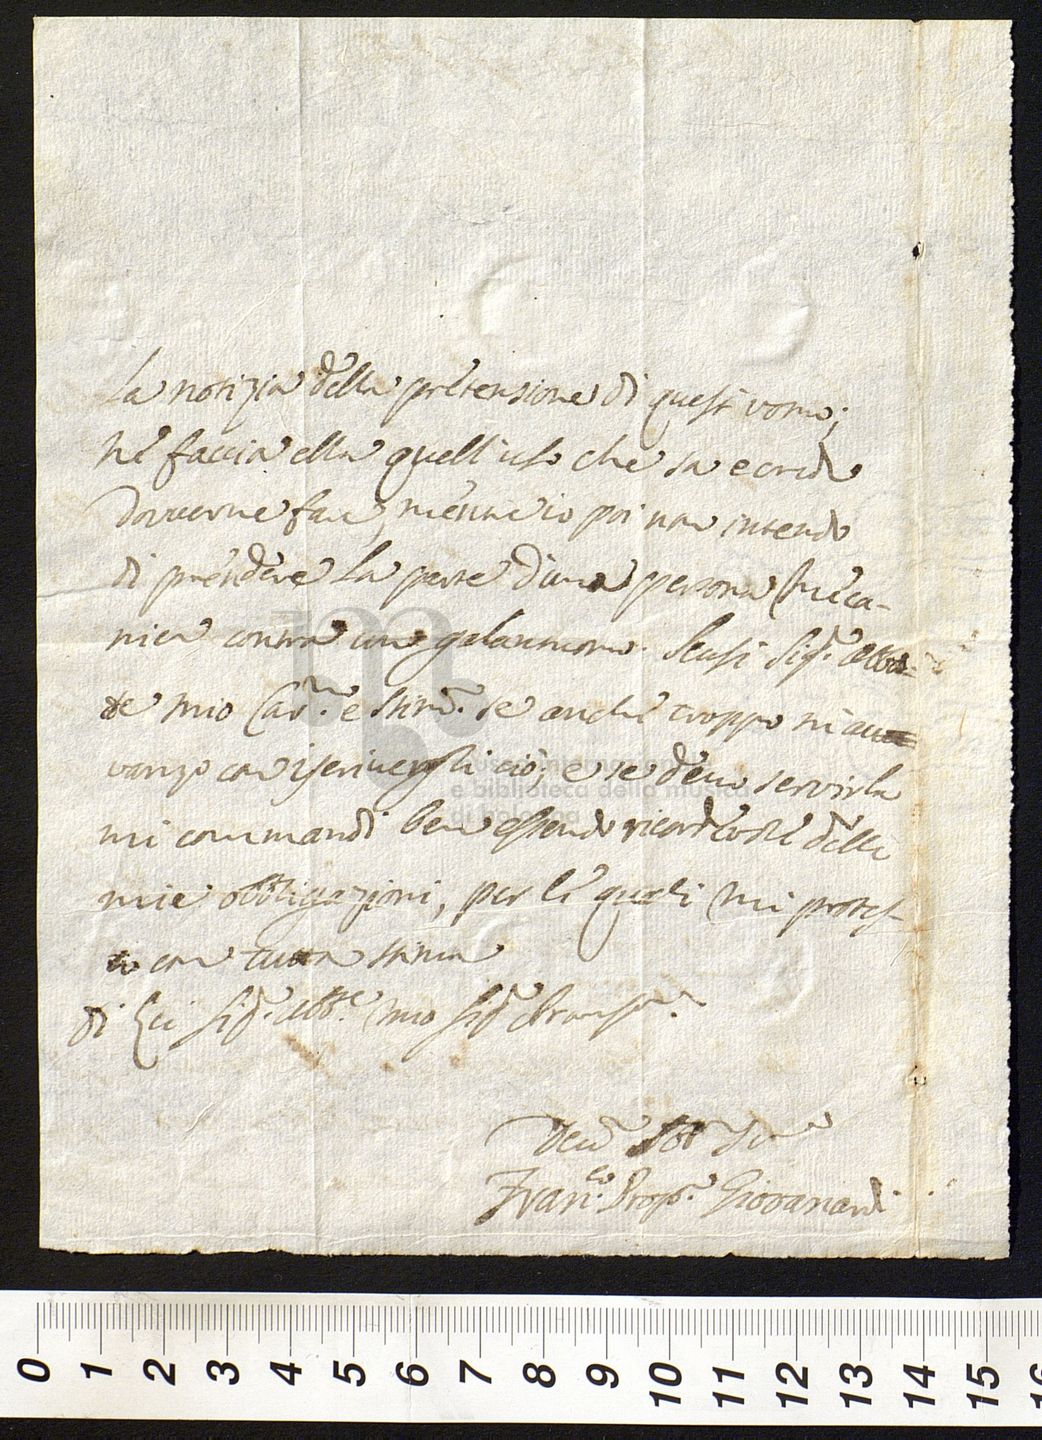 La notizia della pretensione di quest'uomo;
Ne faccia ella quell'uso che sa e crede
doverne fare, mentre io poi non intendo
di prendere la parte d'una persona mecca-
nica contra un galantuomo. Scusi Sig.r Abba-
te mio Car.mo e Stim.mo se anche troppo m'a
vanzo con iscrivergli ciò, e se devo servirla
mi commandi ben essendo ricordevole delle
mie obbligazioni, per le quali mi protes-
to con tutta stima
di Lei Sig.r Abb.e mio Sig.r
Dev.mo Obb.mo
Fran.co Prosp.o Giovanardi
museo internazionale
e biblioteca della musica
di bologna
0 1 2 3 4 5 6 7 8 9 10 11 12 13 14 15 16